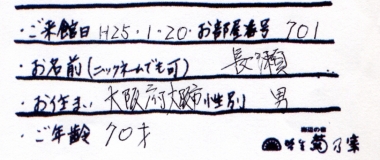 ・ご来館日 H25・1・20・お部屋番号 701
・お名前(ニックネームでも可) 長瀬
・お住まい 大阪府大阪市 性別 男
・ご年齢 70才
海辺の宿